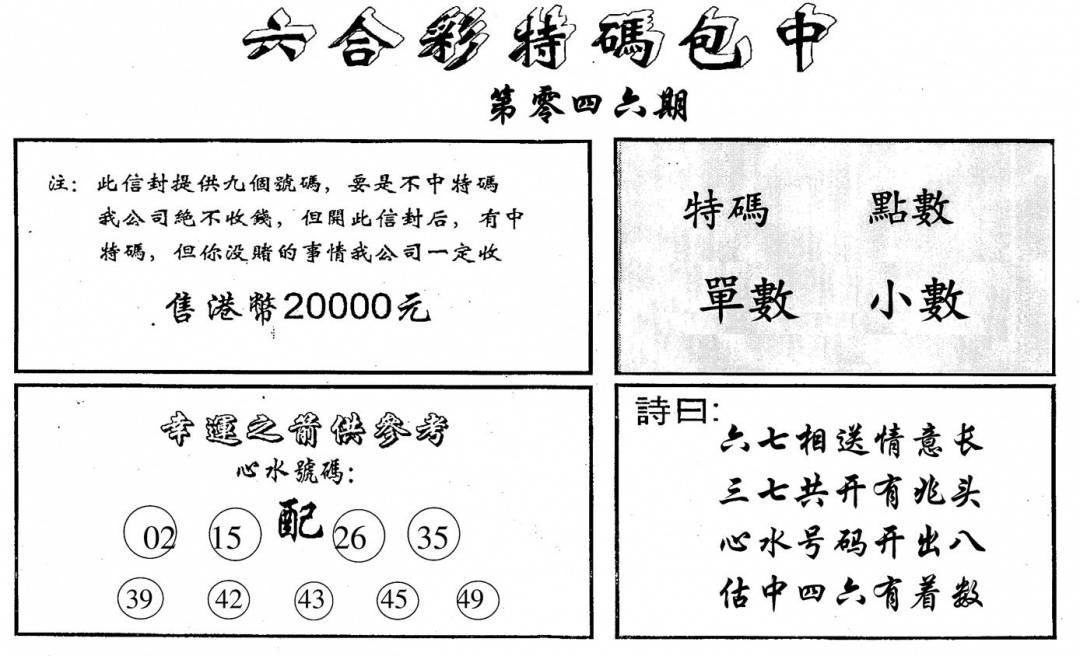 六合彩特碼包中
第零四六期
注：此信封提供九個號碼，要是不中特碼
我公司絕不收錢，但開此信封后，有中
特碼，但你没賭的事情我公司一定收
售港幣20000元
特碼 點數
單數 小數
幸運之箭供參考
心水號碼：
配
02 15 26 35
39 42 43 45 49
詩曰：
六七相送情意长
三七共开有兆头
心水号码开出八
估中四六有着数